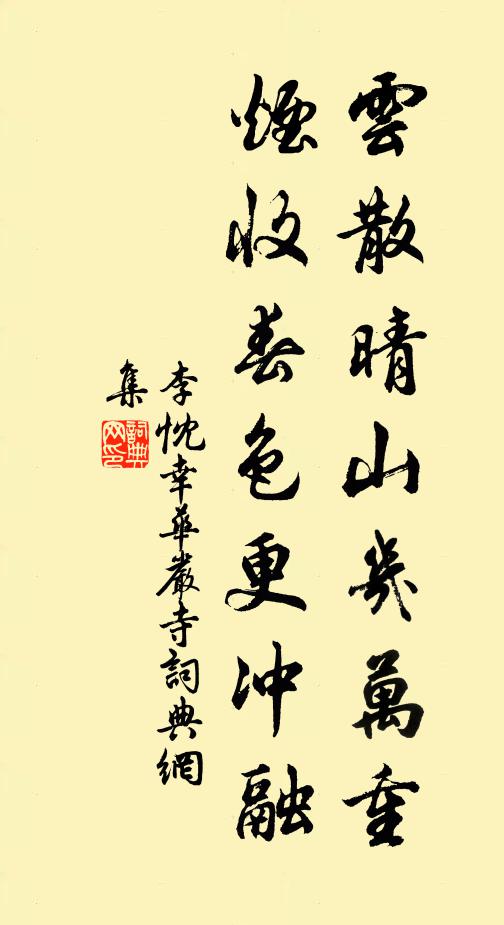 雲散晴山幾萬重
煙收春色更冲融
李忱幸華嚴寺詞典網
集
詞典
网印